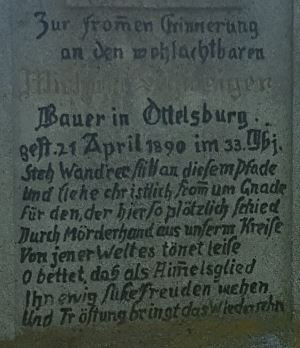 Zur from̅en Erinnerung
an den wohlachtbaren
Bauer in Ottelsburg.
gest. 21 April 1890 im 33. Lbj.
Steh Wand'rer still an diesem Pfade
Und flehe christlich from̅ um Gnade
Für den, der hier so plötzlich schied
Durch Mörderhand aus unserm Kreise
Von jener Welt es tönet leise
O bettet, daß als Him̅elsglied
Ihn ewig süße Freuden wehen
Und Tröstung bringt das Wiedersehn